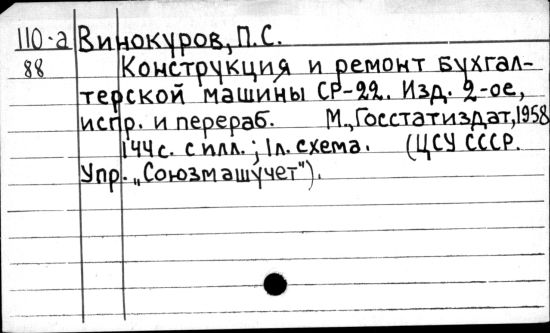 110-а Винокуров, П.С.
88 Конструкция и ремонт бухгал-
терской машины СР-22. Изд. 2-ое,
испр. и перераб. М., Госстатиздат, 1958
144с. с илл.; 1л. схема. (ЦСУ СССР.
Упр. „Союзмашучет").